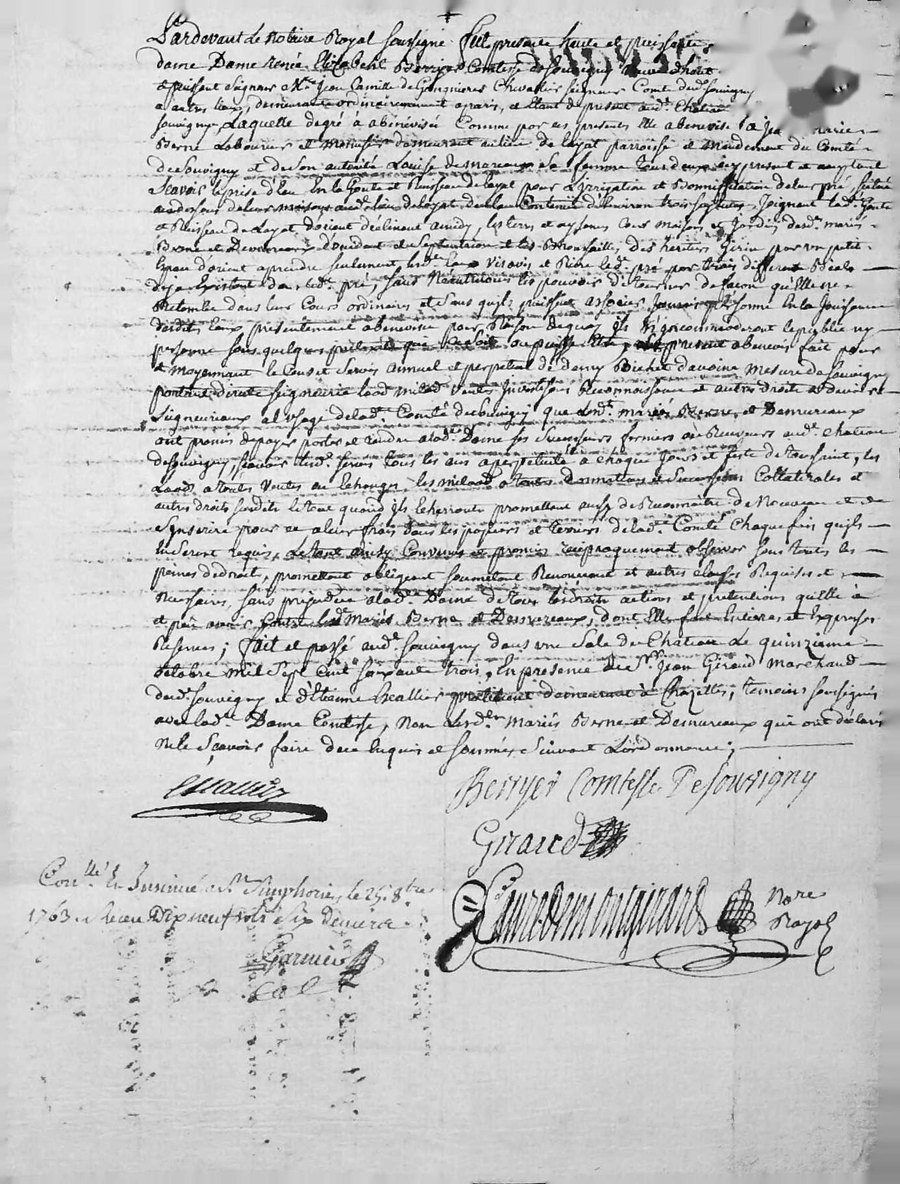 Pardevant Le Notaire Royal soussigné fut presente haute et puissante
dame Dame Renée Elizabeth Berryer Comtesse de Souvigny veuve d'haut
et puissant seigneur Mre Jean Camille de Chevalier seigneur Comte dud. Souvigny
et autres lieux, demeurante ordinairement a paris, et étant de present aud. Chateau
Souvigny, Laquelle de gré à abénévisé Comme par ces presentes Elle abenevise a Jean Marie
Berne Laboureur et demeurant au lieu de Layat parroisse et Mandement du Comté
de Souvigny et de son autorité Louise de mureaux sa femme tous deux icy present et acceptant
Scavoir la prise d'Eau En la Goute et Ruisseau de Layat pour L'irrigation et Bonnification de leur pré, scitué
au dessous de leurs maisons aud. lieu de Layat de la Contenue d'Environ trois Joignant lad. Goute
et Ruisseau de Layat d'orient déclinant a midy, les terre et aysances Cour Maison et Jardin desd. mariés
Berne et Demureaux d'occident et septentrion et les Brousailles des heritiers Girin par un petit
d'orient a prendre seulement lesd. Eaux visavis et Riere led. pré par trois differents Béals
deja Existant dans led. pré, sans Neantmoins les pouvoir détourner de façon qu'Elles ne
Retombe dans leur Cours ordinaire et sans quils puissent associer Jamais personne En la Jouissance
desdits Eaux presentement abenevisé pour Raison de quoy ils N'incommoderont le public ny
personne sous quelque pretexte que ce soit ou puisse Etre, le present abenevis fait pour
et moyennant le Cens et Servis annuel et perpetuel de demy Bichet d'avoine mesure de Souvigny
portant directe seigneurie laod milaod ventes Investison Reconnoissance et autres droits et devoirs
seigneuriaux a l'usage de lad. Comté de Souvigny que lesd. mariés Berne et Demureaux
ont promis de payer porter et Rendre a lad. Dame ses Successeurs fermiers ou Receveurs aud. Chateau
de Souvigny, Scavoir led. servis tous les ans a perpetuité a chaque Jour et feste de Toussaint, les
Laods a toutes Ventes ou Echanges les milaods a toutes donnations et Successions Collaterales et
autres droits susdits le Cas quand ils Echerront promettant aussy de Reconnoitre de Nouveau et de
s'inscrire pour ce a leur frais dans les papiers et terriers de lad. Comté Chaque fois quils
En seront Requis, Le tout ainsy Convenu et promis reciproquement observer sous toutes les
peines de droit, promettant obligeant soumettant Renonceant et autres clauses Requises et
Necessaires, sans prejudice a lad. Dame de tous ses droits actions et pretentions qu'Elle a
et peut avoir contre lesd. Mariés Berne et Demureaux, dont Elle fait Entieres et Expresses
Reserves; fait et passé aud. Souvigny dans une Sale du Chateau Le quinzieme
octobre Mil Sept Cent soixante trois, En presence de Sr. Jean Giraud Marchand
dud. Souvigny et d'Etienne praticien demeurant a Chazelles, temoins soussignés
avec lad. Dame Comtesse, Non lesd. Mariés Berne et Demureaux qui ont déclaré
ne le Scavoir faire de ce Enquis et sommés Suivant L'ordonnance;
Berryer Comtesse De Souvigny
Giraud
Conllé Et Insinué a St. Simphorien le 25. 8bre
1763. Receu Dix neuf sols six deniers
Notre
Royal
Garnier